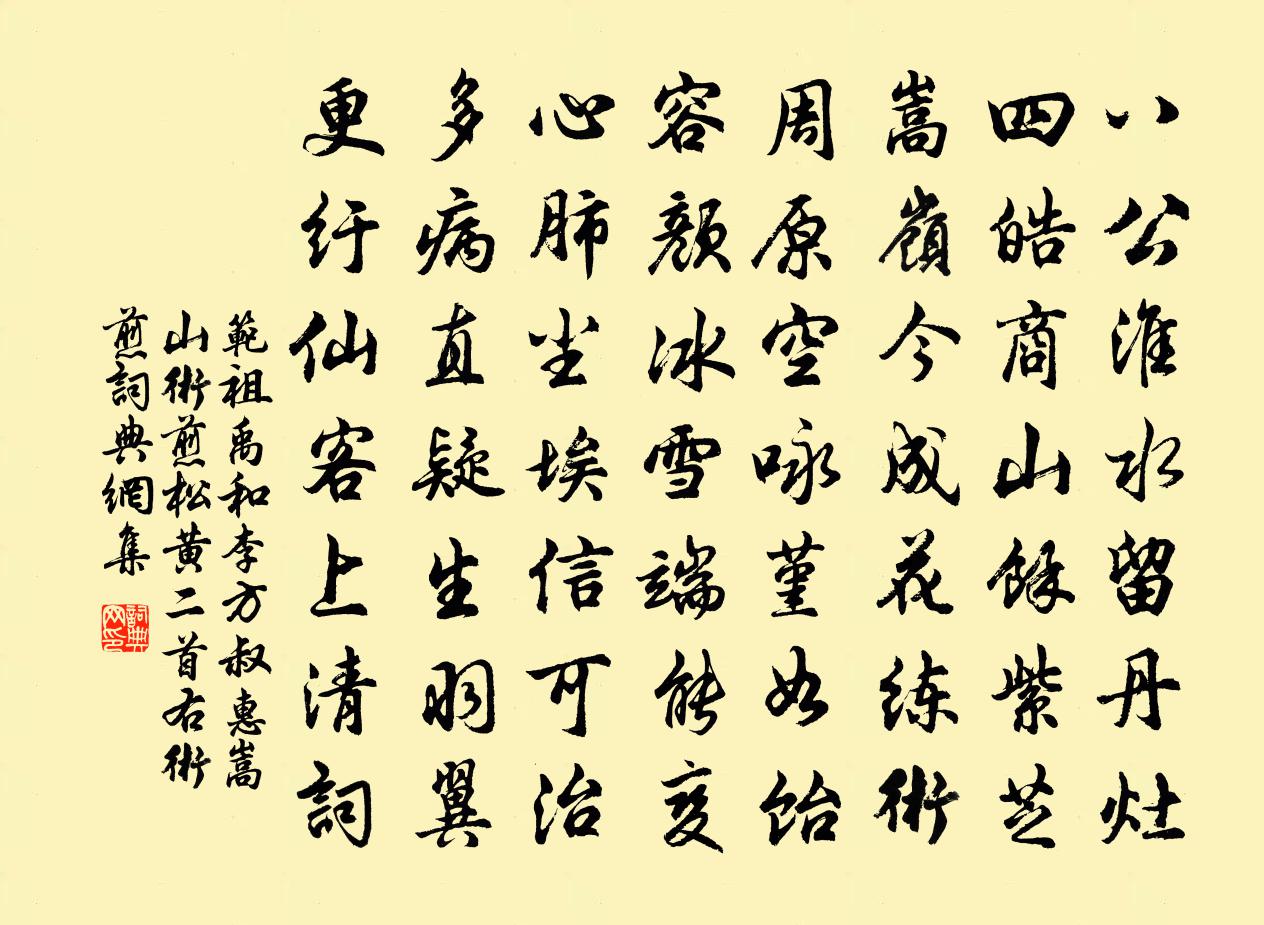 八公淮水留丹灶
四皓商山餘紫芝
嵩嶺今成花練術
周原空咏堇如飴
容顏冰雪端能变
心肺尘埃信可治
多病直疑生羽翼
更纡仙客上清詞
範祖禹和李方叔惠嵩
山術煎松黄二首右術
煎詞典網集
詞典网印